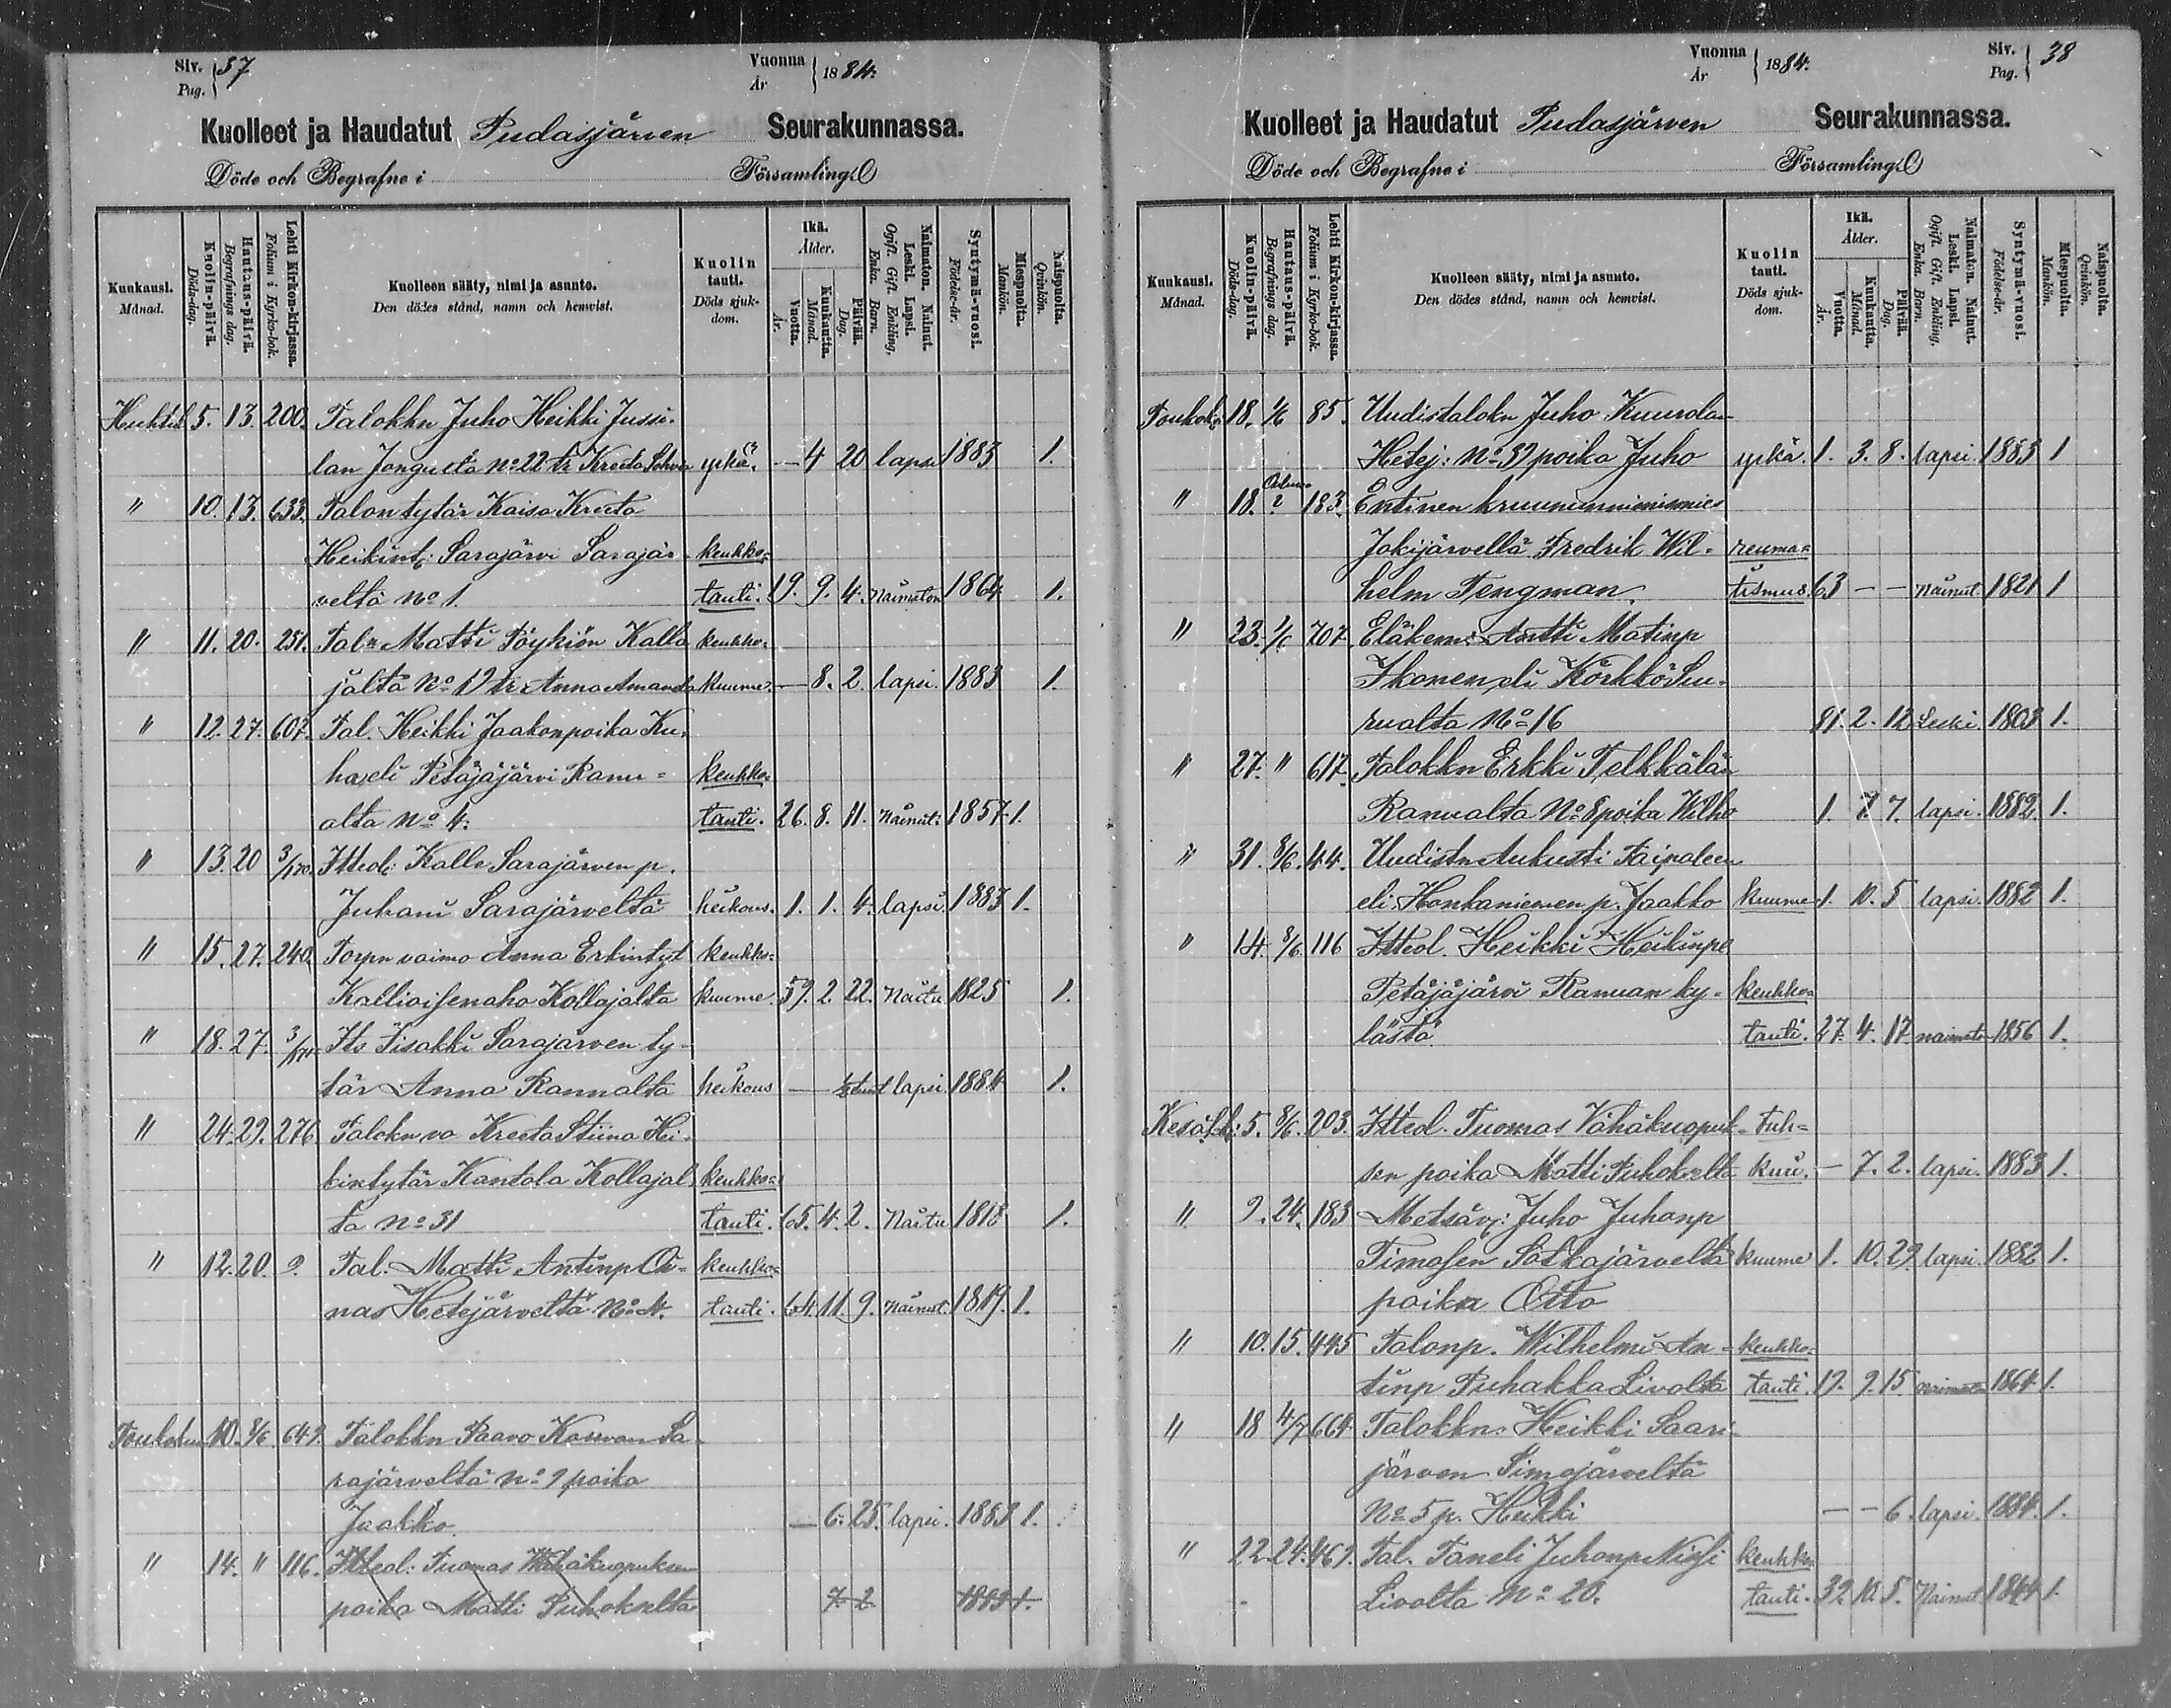 Siv. Pag. 37
Vuonna År 1884.
Kuolleet ja Haudatut Pudasjärven Seurakunnassa.
Döde och Begrafne i Församling.
Kuukausi. Månad.
Kuolin-päivä. Döds-dag.
Hautaus-päivä. Begrafnings dag.
Lehti Kirkon-kirjassa. Folium i Kyrko-bok.
Kuolleen sääty, nimi ja asunto.
Den dödes stånd, namn och hemvist.
Kuolin tauti. Döds sjuk-dom.
Ikä. Ålder.
Vuotta. År.
Kuukautta. Månad.
Päivää. Dag.
Naimaton. Nainut. Leski. Lapsi.
Ogift. Gift. Enkling, Enka. Barn.
Syntymä-vuosi. Födelse-år.
Miespuolta. Mankön.
Naispuolta. Qvinkön.
Huhtik 5. 13. 200. Talokkn Juho Heikki Jussi-
lan Jongusta No 22 tr Kreeta yskä. — 4 20 lapsi 1883 1.
" 10. 13. 633. Talontytär Kaisa Kreeta
Heikint: Sarajärvi Sarajär keuhko-
veltä No 1. tauti. 19. 9. 4. Naimaton 1864 1.
" 11. 20. 251. Tal: Matti Pöykiön Kolla keuhko-
jalta No 12 tr Anna Amanda kuume. — 8. 2. lapsi. 1883 1.
" 12. 27. 607. Tal. Heikki Jaakonpoika Ku-
ha eli Petäjäjärvi Ranu= keuhko-
alta No 4. tauti. 26. 8. 11. Nainut. 1857. 1.
" 13. 20 3/170. Ittiol: Kalle Sarajärven p.
Juhani Sarajärveltä heikous. 1. 1. 4. lapsi. 1883 1.
" 15. 27. 240. Torpn vaimo Anna Erkintyt keuhko-
Kollajalta kuume. 59. 2. 22. Naitu 1825 1.
" 18. 27. 3/171. Its Iisakki Sarajärven ty-
tär Anna Ranualta heikous — ½ tunt lapsi 1884 1.
" 24. 29. 276 Talokn va Kreeta Stiina Hei-
kintytär Kantola Kollajal keuhko-
ta No 31 tauti. 65. 4. 2. Naitu 1818 1.
" 12. 20. 9. Tal. Matti Antinp Oi- keuhko-
nas Hetejärveltä No 4. tauti. 64. 11. 9. Nainut. 1819. 1.
Toukokuu 10. 8/6 649. Talokkn Paavo Korvan Sa-
rajärveltä No 9 poika
Jaakko. — 6. 25. lapsi. 1883 1.
" 14. " 116. Ittiol: Tuomas Vähäkuopuksen
poika Matti Puhokselta 7. 2 1883 1.
Vuonna År 1884.
Siv. Pag. 38
Kuolleet ja Haudatut Pudasjärven Seurakunnassa.
Döde och Begrafne i Församling.
Kuukausi. Månad.
Kuolin-päivä. Döds-dag.
Hautaus-päivä. Begrafnings dag.
Lehti Kirkon-kirjassa. Folium i Kyrko-bok.
Kuolleen sääty, nimi ja asunto.
Den dödes stånd, namn och hemvist.
Kuolin tauti. Döds sjuk-dom.
Ikä. Ålder.
Vuotta. År.
Kuukautta. Månad.
Päivää. Dag.
Naimaton. Nainut. Leski. Lapsi.
Ogift. Gift. Enkling, Enka. Barn.
Syntymä-vuosi. Födelse-år.
Miespuolta. Mankön.
Naispuolta. Qvinkön.
Toukok: 18. 1/6 85. Uudistalokn Juho Kuurolan
Hetej: No 37 poika Juho yskä. 1. 3. 8. lapsi. 1883 1
Oulussa
" 18. ? 183. Entinen kruununnimismies
Jokijärvellä Fredrik Wil- reuma=
helm Tengman. tismus. 63 — — Nainut. 1821 1
" 23. 1/6 707. Eläkem: Antti Matinp
Ikonen eli Körkkö Suu-
rualta No 16 81. 2. 12 Leski. 1803 1.
" 27. " 617. Talokkn Erkki Telkkälän
Ranualta No 8 poika Wilho 1. 7. 7. lapsi. 1882. 1.
" 31. 8/6. 44. Uudistn Aukusti Taipaleen
eli Honkaniemen p. Jaakko kuume 1. 10. 5 lapsi. 1882 1.
" 14. 8/6. 116 Ittiol. Heikki Heikinpo
Petäjäjärvi Ranuan ky- keuhko-
lästä. tauti. 27. 4. 17 naimaton 1856 1.
Kesäkk: 5. 8/6. 203. Ittiol. Tuomas Vähäkuopuk- tuh=
sen poika Matti Puhokselta kuu. — 7. 2. lapsi. 1883 1.
" 9. 24. 183 Metsäv: Juho Juhonp
Timosen Sotkajärveltä kuume 1. 10. 29. lapsi. 1882 1.
poika Otto
" 10. 15. 445 Talonp. Wilhelmi An- keuhko-
tinp Puhakka Livolta tauti. 19. 9. 15. naimaton 1864 1.
" 18 4/7 664 Talokkn: Heikki Saari-
järven Simojärveltä
No 5 p. Heikki — — 6. lapsi. 1884. 1.
" 22. 24. 469. Tal. Taneli Juhonp Nissi keuhko-
Livolta No 20. tauti. 39. 10. 5. Nainut 1844 1.